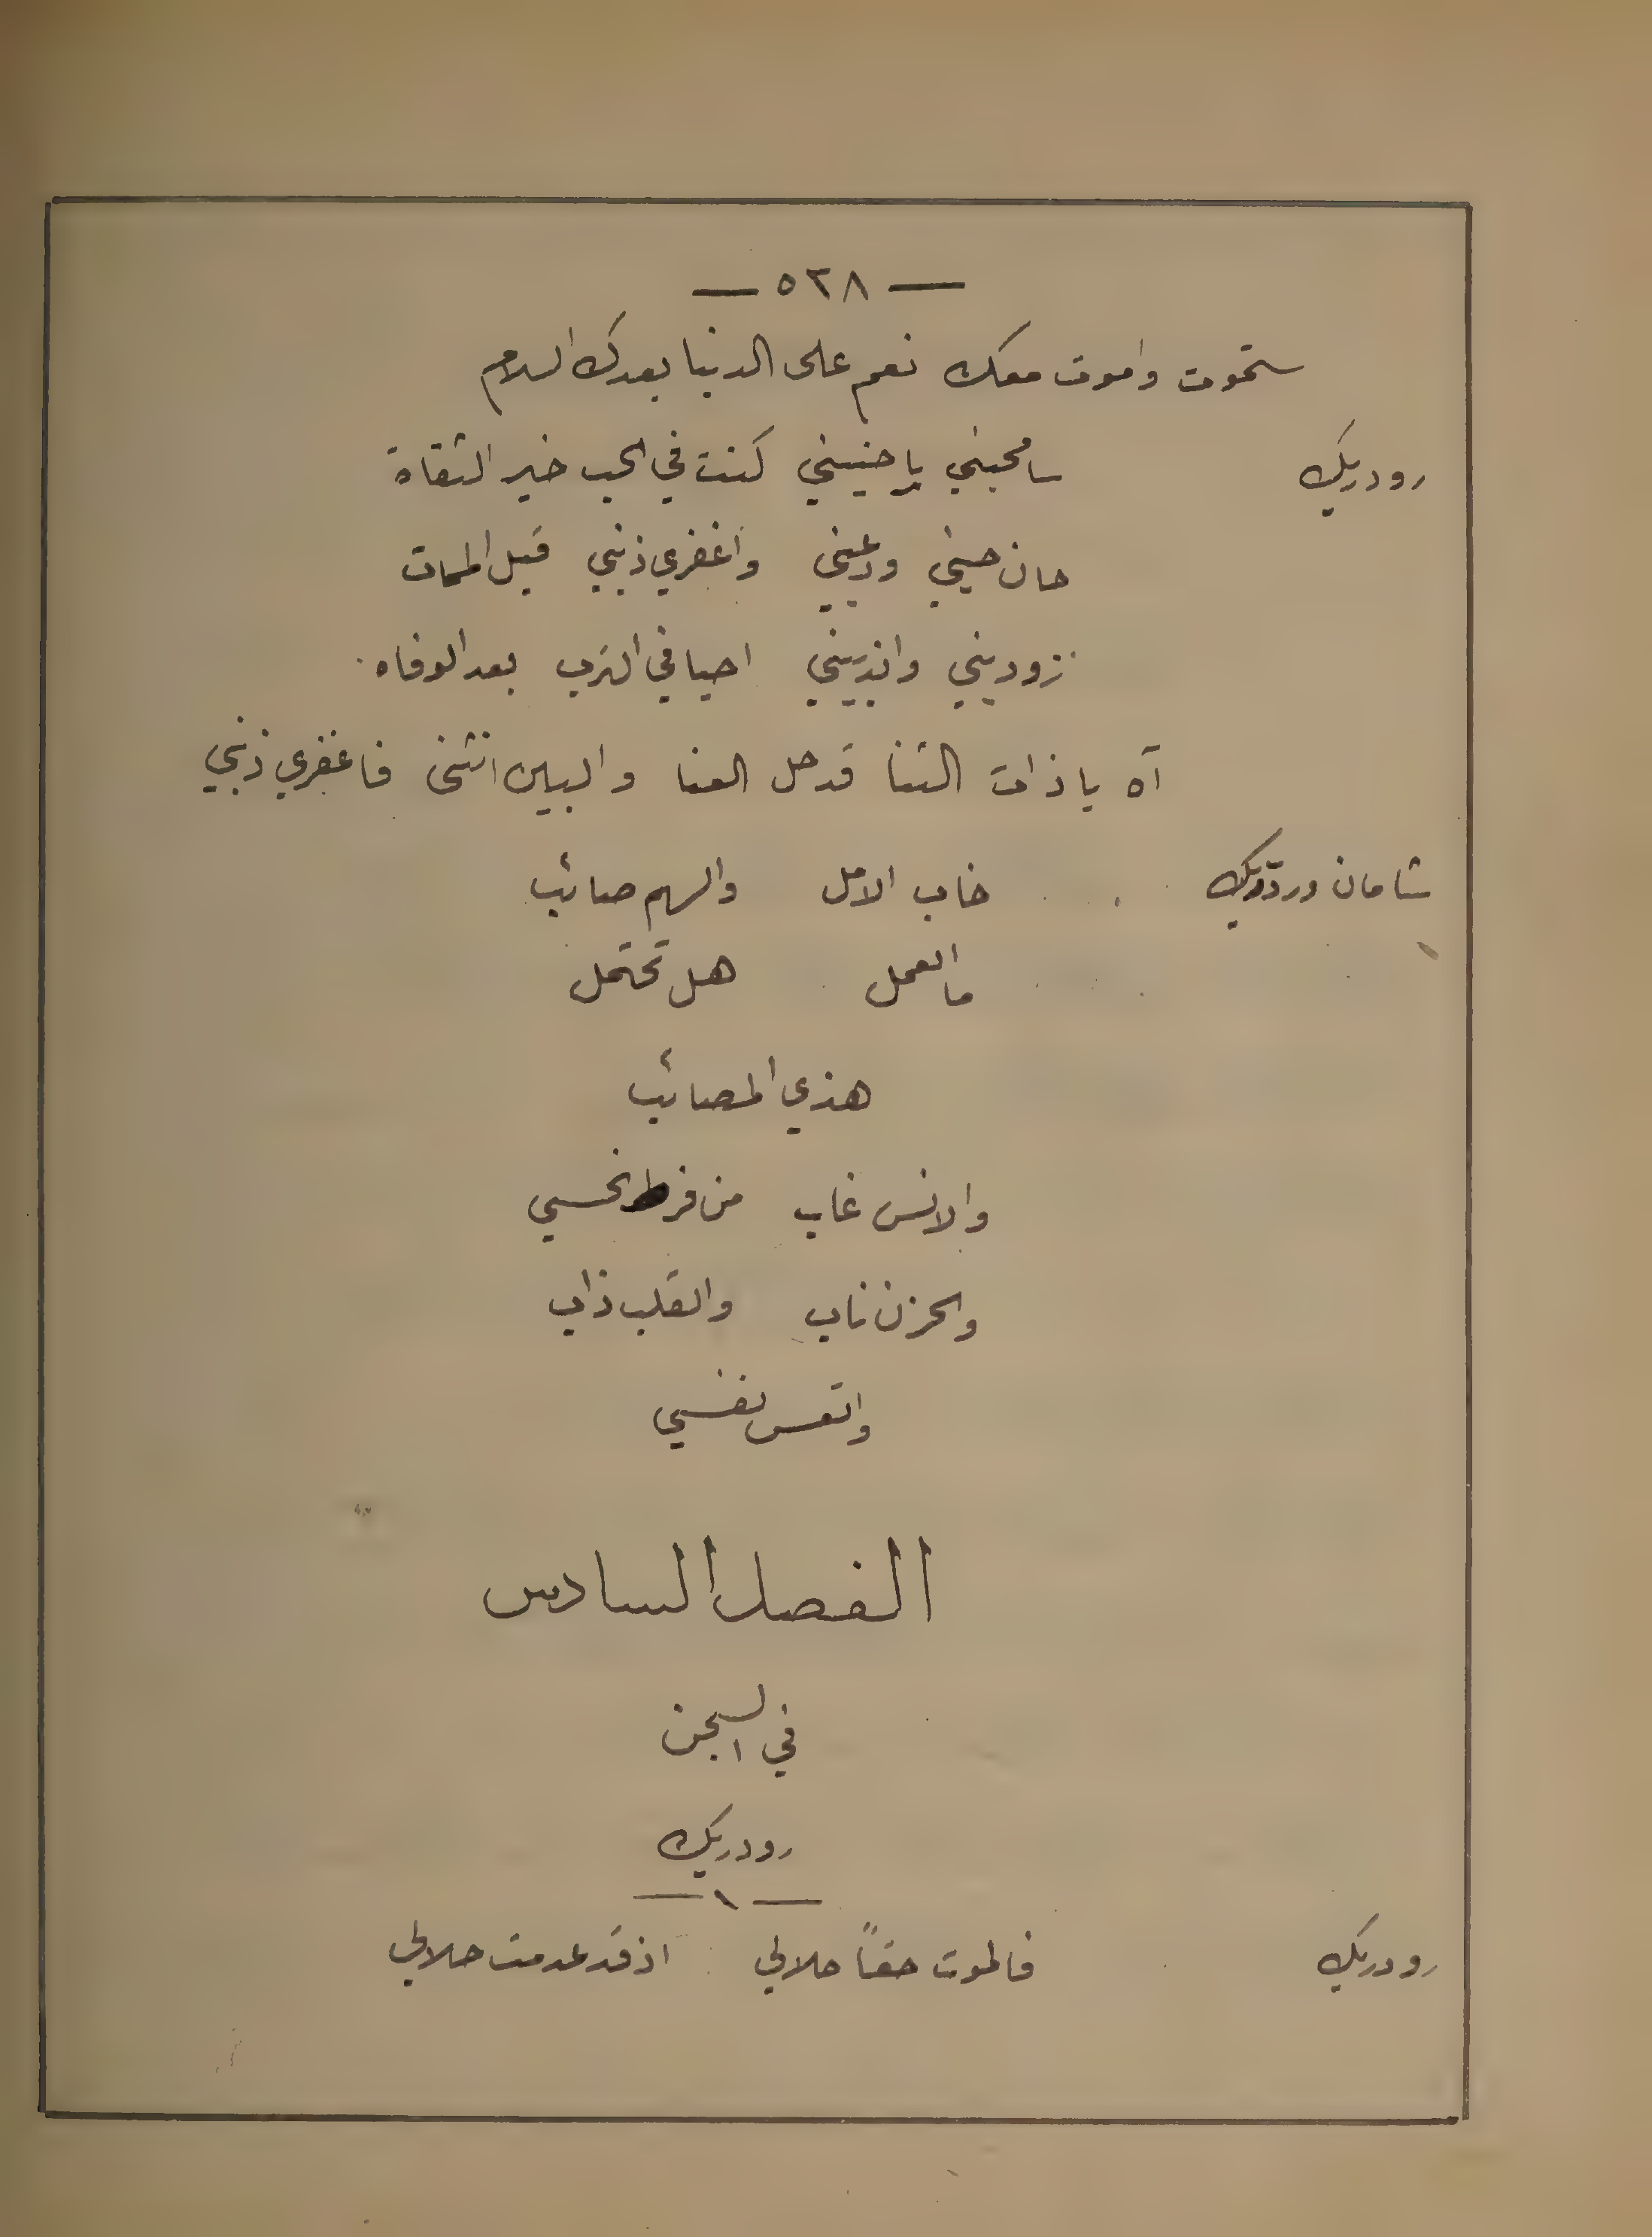 — ٥٢٨ —
ستموت واموت معك نعم على الدنيا بعدك السلام
رودريك سامحيني يا حنيني كنت في الحب خير الثقاة
حان حيني ودعيني واغفري ذنبي قبل الممات
زوديني واندبيني احيا في الترب بعد الوفاه
آه يا ذات الثنا قد حل العنا والبين انثنى فاغفري ذنبي
شامان ورودريك خاب الامل والهم صائب
ما العمل هل تحتمل
هذي المصائب
والانس غاب من فرط نحسي
والحزن ناب والقلب ذاب
واتعس نفسي
الفصل السادس
في السجن
رودريك
— ١ —
رودريك فالموت حقاً حلالي اذ قد عدمت حلالي